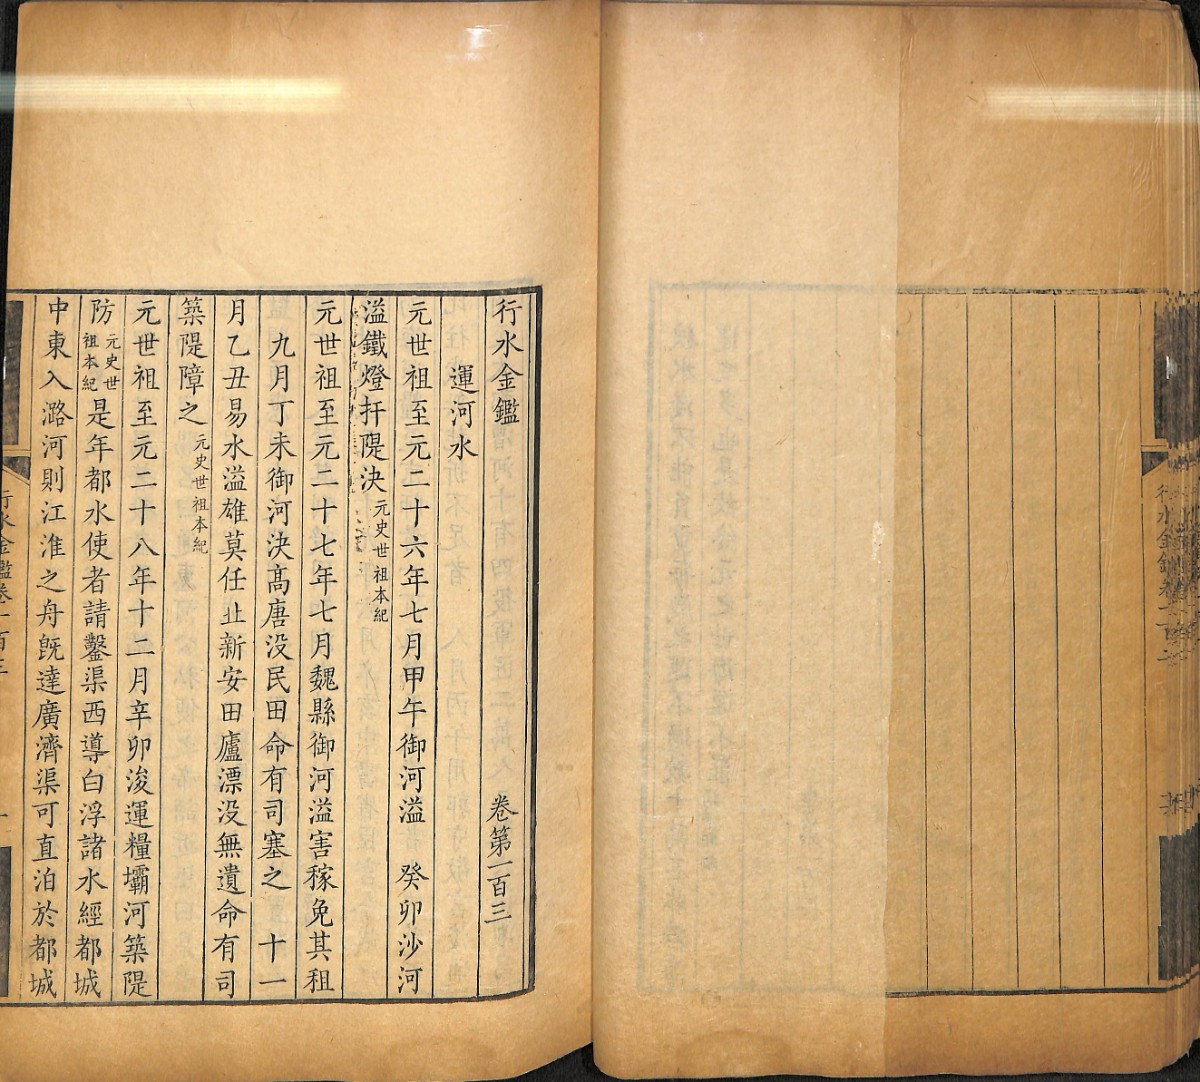 行水金鑑　卷第一百三
運河水
元世祖至元二十六年七月甲午御河溢　癸卯沙河
溢鐵燈扞隄決元史世祖本紀
元世祖至元二十七年七月魏縣御河溢害稼免其租
九月丁未御河決髙唐没民田命有司塞之　十一
月乙丑易水溢雄莫任丘新安田廬漂没無遺命有司
築隄障之元史世祖本紀
元世祖至元二十八年十二月辛卯浚運糧壩河築隄
防元史世祖本紀是年都水使者請鑿渠西導白浮諸水經都城
中東入潞河則江淮之舟旣達廣濟渠可直泊於都城
行水金鑑卷一百三